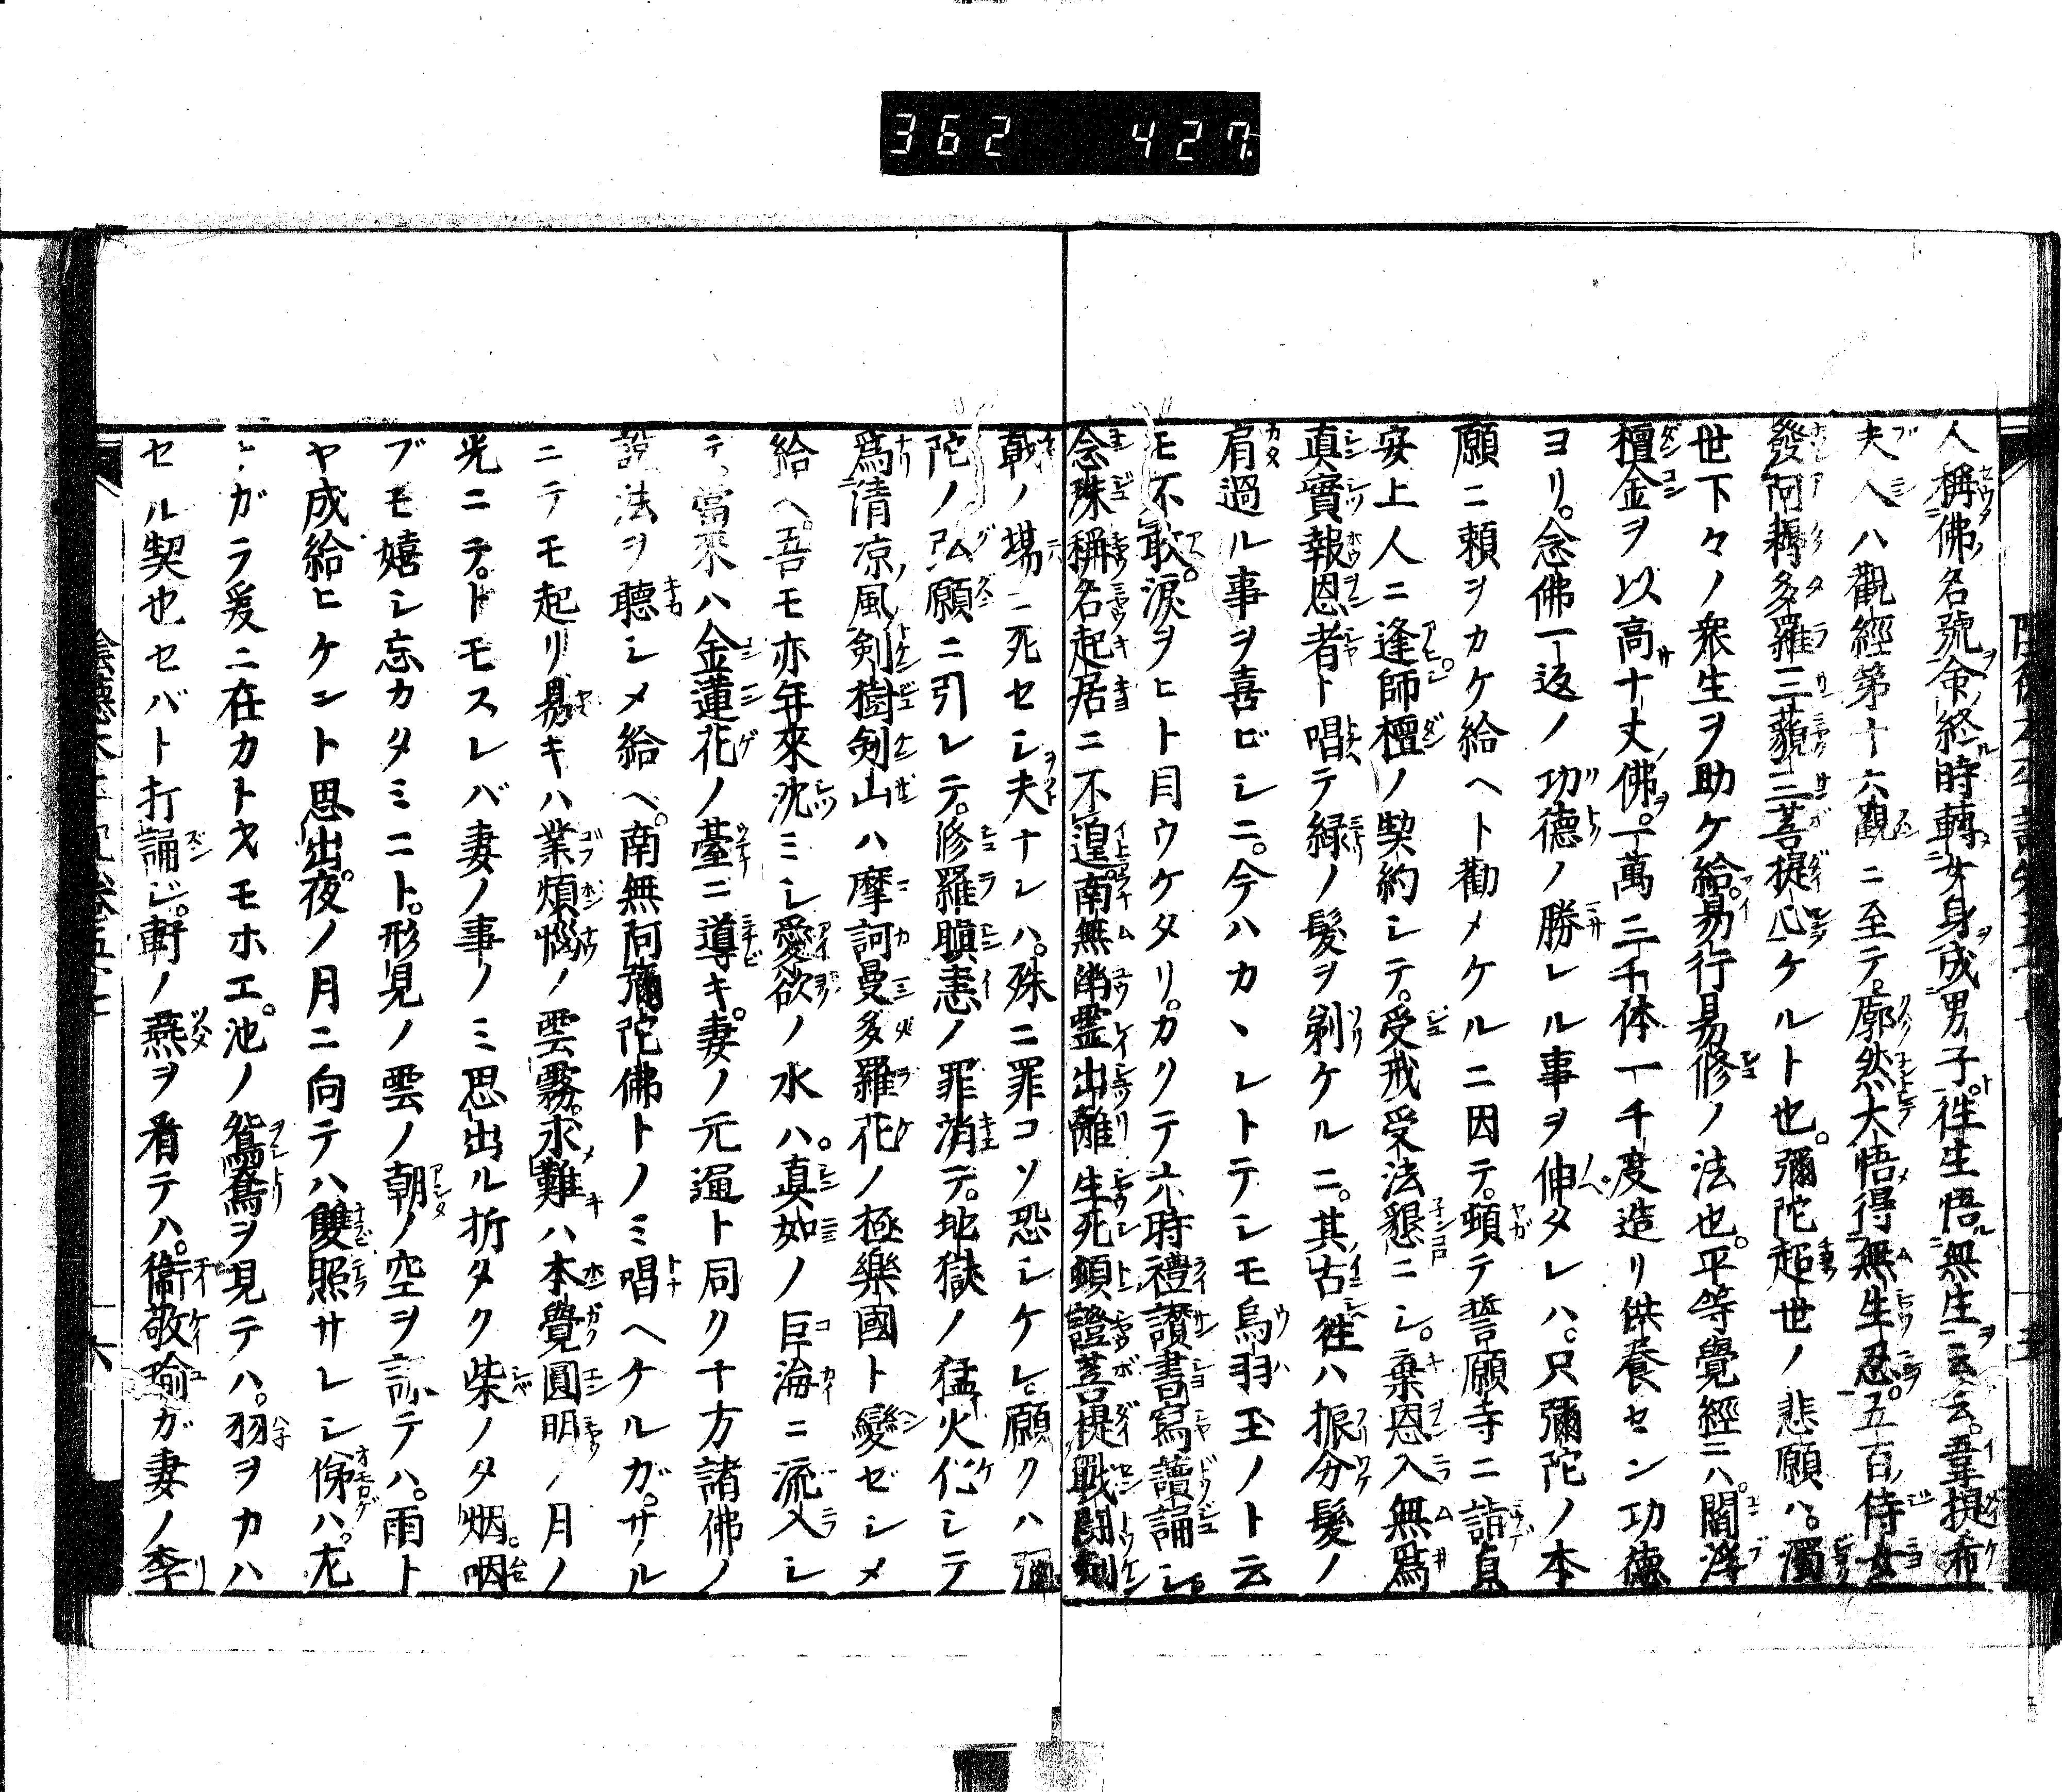 362 427
人稱佛名號命終時轉女身成男子往生悟無生云云韋提希
夫人ハ觀經第十六觀ニ至テ廓然大悟得無生忍五百侍女
發阿耨多羅三藐三菩提心ケルト也彌陀超世ノ悲願ハ濁
世下々ノ衆生ヲ助ケ給易行易修ノ法也平等覺經ニハ閻浮
檀金ヲ以高十丈佛一萬三千体一千度造リ供養セン功德
ヨリ念佛一返ノ功德ノ勝レル事ヲ伸タレハ只彌陀ノ本
願ニ賴ヲカケ給ヘト勸メケルニ因テ頓テ誓願寺ニ詣貞
安上人ニ逢師檀ノ契約シテ受戒受法懇ニシ棄恩入無爲
真實報恩者ト唱テ緑ノ髮ヲ剃ケルニ其古往ハ振分髮ノ
肩過ル事ヲ喜ビシニ今ハカヽレトテシモ烏羽玉ノト云
モ不敢淚ヲヒト目ウケタリカクテ六時禮讃書寫讀誦シ
念珠稱名起居ニ不遑南無幽霊出離生死頓證菩提戰鬪劍
戟ノ場ニ死セシ夫ナレハ殊ニ罪コソ恐シケレ願クハ彌
陀ノ弘願ニ引レテ修羅瞋恚ノ罪消テ地獄ノ猛火化シテ
爲清凉風剣樹剣山ハ摩訶曼多羅花ノ極樂國ト變ゼシメ
給ヘ吾モ亦年來沈ミシ愛欲ノ水ハ真如ノ巨海ニ流入シ
テ當來ハ金蓮花ノ臺ニ導キ妻ノ元逼ト同ク十方諸佛ノ
說法ヲ聽シメ給ヘ南無阿彌陀佛トノミ唱ヘケルガサル
ニテモ起リ易キハ業煩惱ノ雲霧求難ハ本覺圓明ノ月ノ
光ニテトモスレバ妻ノ事ノミ思出ル折タク柴ノタ烟咽
ブモ嬉シ忘カタミニト形見ノ雲ノ朝ノ空ヲ詠テハ雨ト
ヤ成給ヒケント思出夜ノ月ニ向テハ雙照サレシ俤ハ尤
ヒガラ爰ニ在カトオモホエ池ノ鴛鴦ヲ見テハ羽ヲカハ
セル契也セバト打誦ジ軒ノ燕ヲ看テハ衞敬瑜ガ妻ノ李